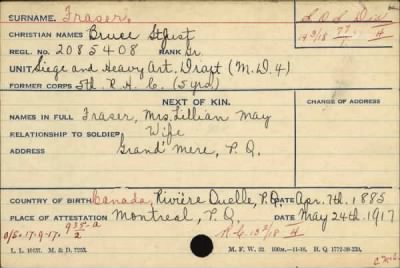 SURNAME. Fraser.
CHRISTIAN NAMES Bruce
REGL. NO. 2085408 RANK Gr.
UNIT Siege and Heavy Art. Draft (M.D.4)
FORMER CORPS 5th. R.H.C. (5 yrs)
NEXT OF KIN.
CHANGE OF ADDRESS
NAMES IN FULL Fraser, Mrs. Lillian May
RELATIONSHIP TO SOLDIER Wife
ADDRESS Grand' Mere, P.Q.
COUNTRY OF BIRTH Canada, Rivière Ouelle, P.Q. DATE Apr. 7th. 1885
PLACE OF ATTESTATION Montreal, P.Q. DATE May 24th. 1917
O/S. 17-9-17. 935-A/2
L. L. 10537. M. & D. 7253.
M. F. W. 22.